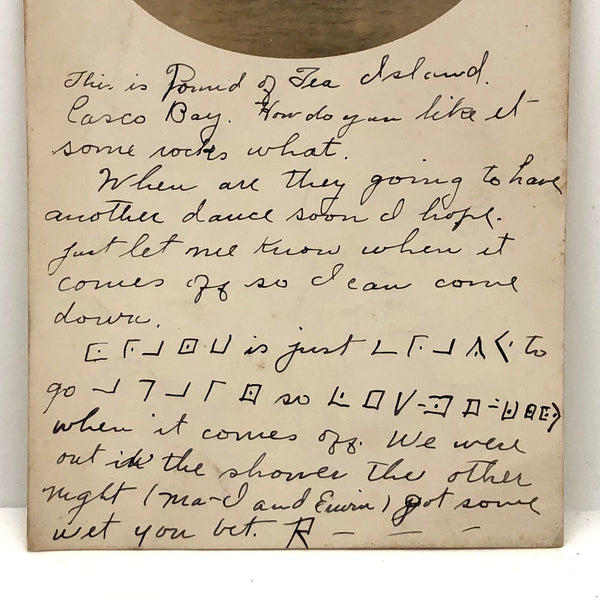 This is Pound of Tea Island.
Casco Bay. How do you like it
some rocks what.
When are they going to have
another dance soon I hope.
just let me know when it
comes off so I can come
down.
is just to
go so
when it comes off. We were
out in the shower the other
night (ma-I and Erwin) got some
wet you bet. R – – –